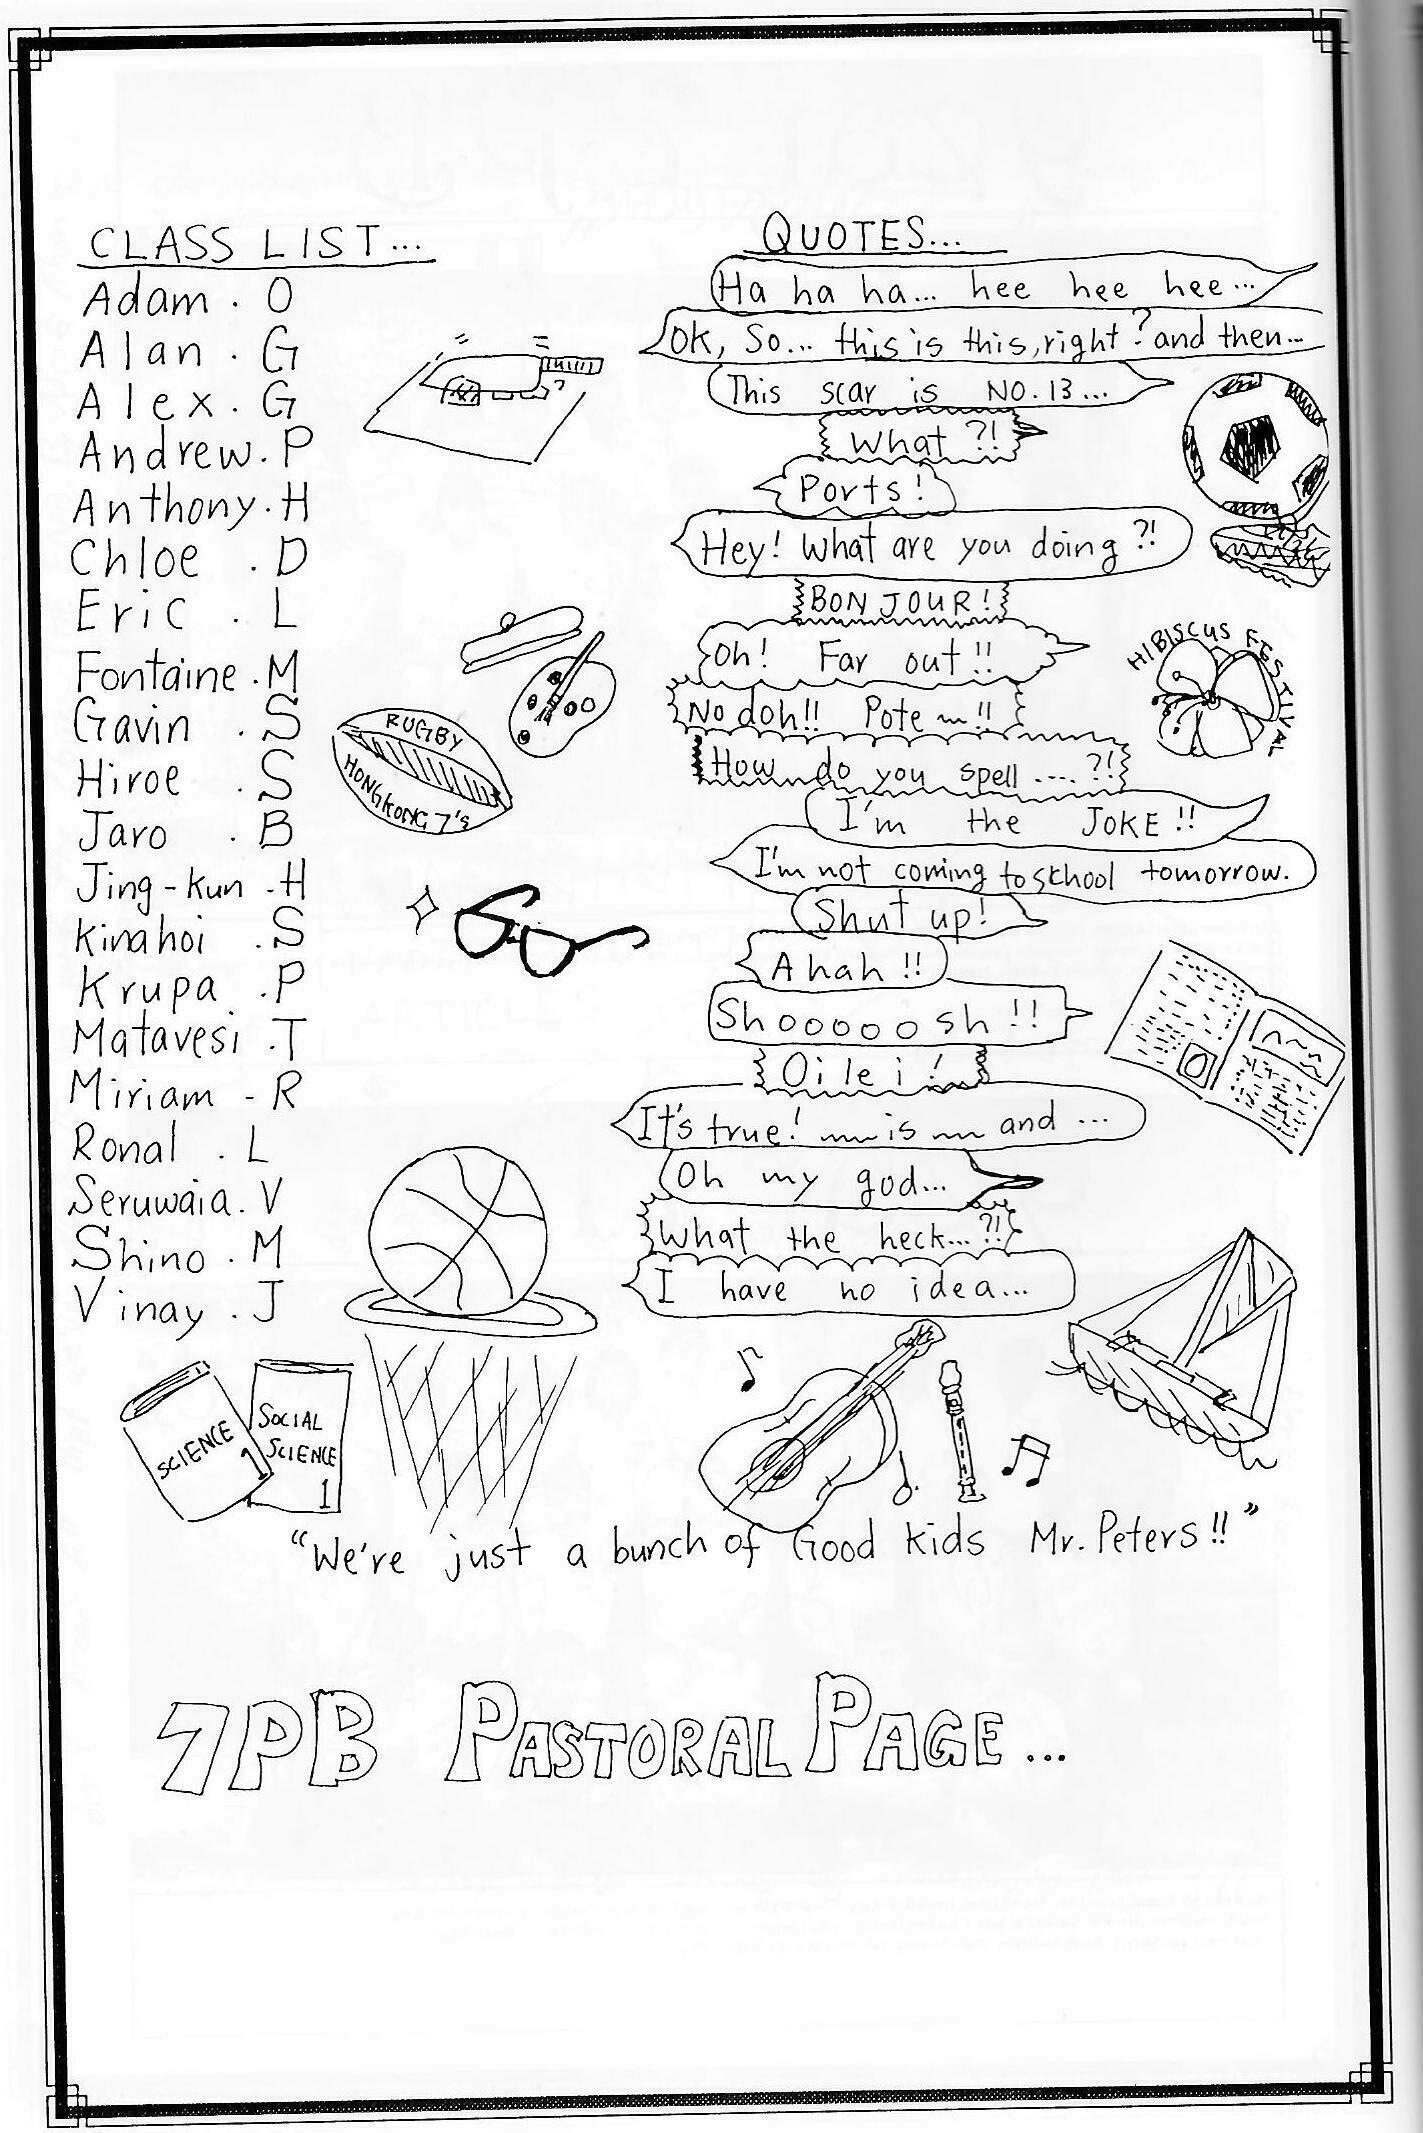 CLASS LIST...
Adam . O
Alan . G
Alex . G
Andrew . P
Anthony . H
Chloe . D
Eric . L
Fontaine . M
Gavin . S
Hiroe . S
Jaro . B
Jing-kun . H
Kinahoi . S
Krupa . P
Matavesi . T
Miriam - R
Ronal . L
Seruwaia . V
Shino . M
Vinay . J
QUOTES...
Ha ha ha... hee hee hee...
OK, So... this is this, right? and then...
This scar is NO.13...
What ?!
Ports!
Hey! What are you doing ?!
BONJOUR!
Oh! Far out!!
No doh!! Pote !!
How do you spell ....?!
I'm the JOKE!!
I'm not coming to school tomorrow.
Shut up!
Ahah!!
Shooooosh!!
Oilei!
It's true! is and ...
Oh my god...
What the heck...?!!
I have no idea...
RUGBY
HONGKONG 7's
HIBISCUS FESTIVAL
SCIENCE
1
SOCIAL
SCIENCE
1
"We're just a bunch of Good kids Mr. Peters!!"
7PB PASTORAL PAGE...